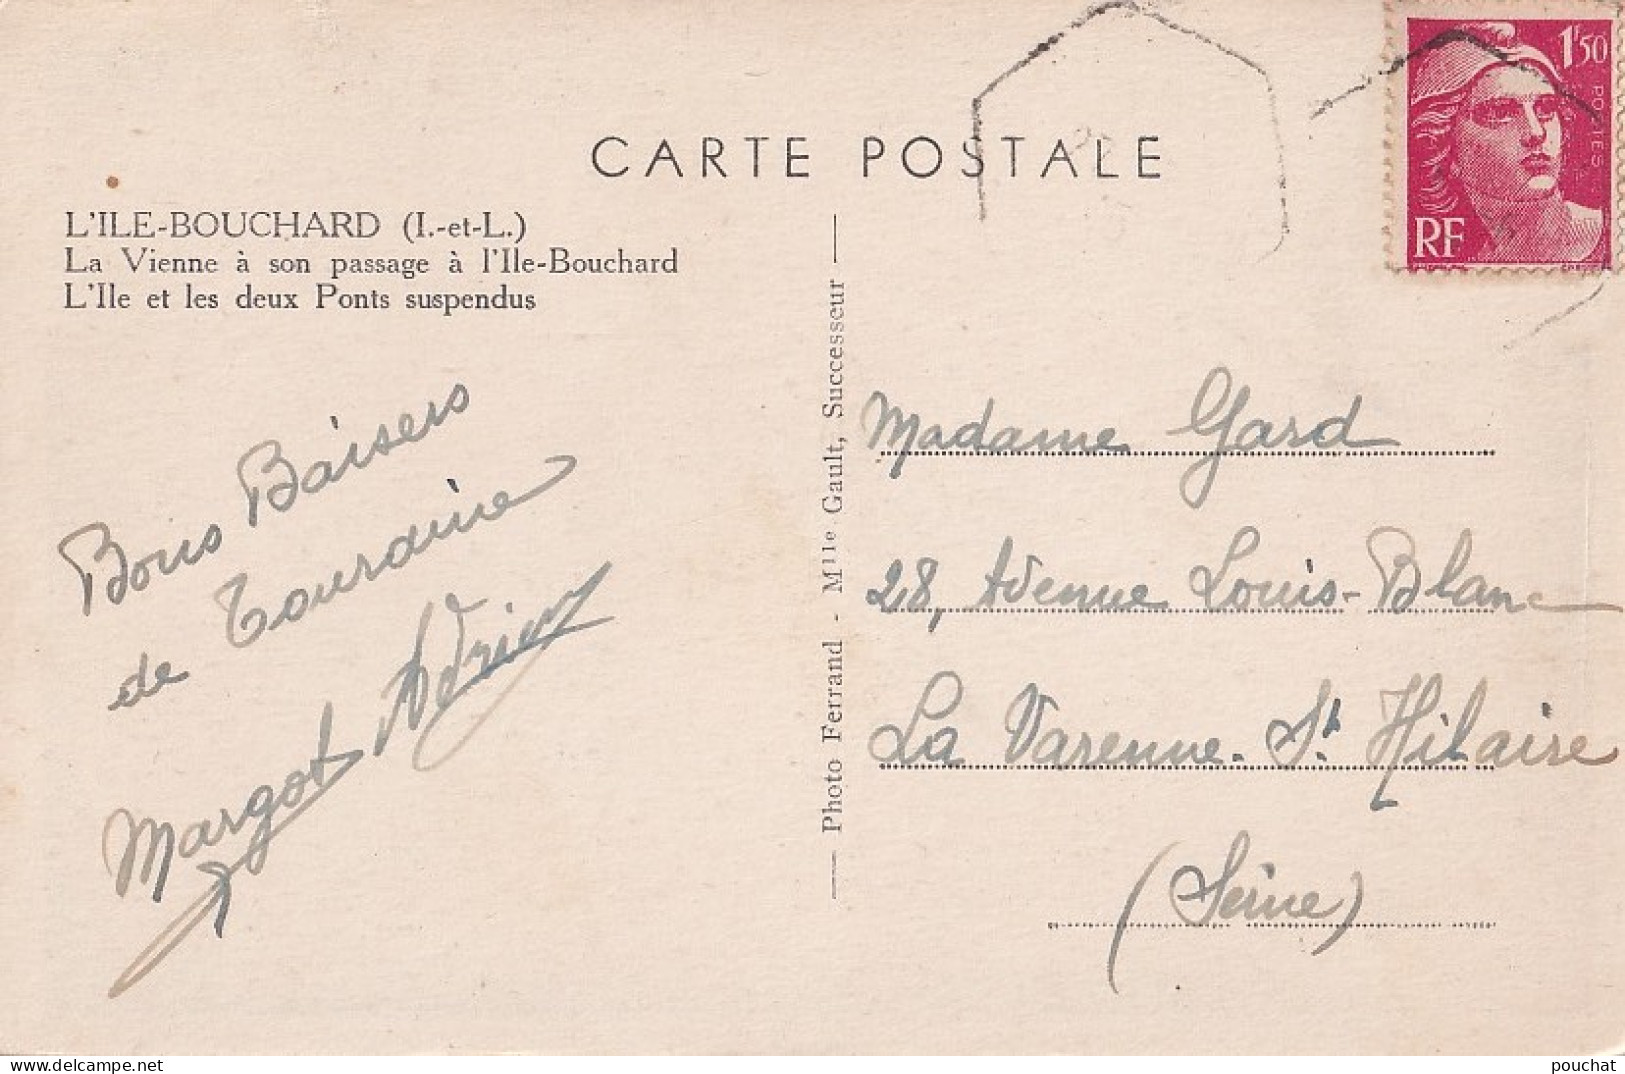 CARTE POSTALE
1F50
POSTES
RF
L'ILE-BOUCHARD (I.-et-L.)
La Vienne à son passage à l'Ile-Bouchard
L'Ile et les deux Ponts suspendus
Bons Baisers
de Touraine
Margot Adrien
Photo Ferrand - Mlle Gault, Successeur
Madame Gard
28, Avenue Louis-Blanc
La Varenne-St Hilaire
(Seine)
pouchat